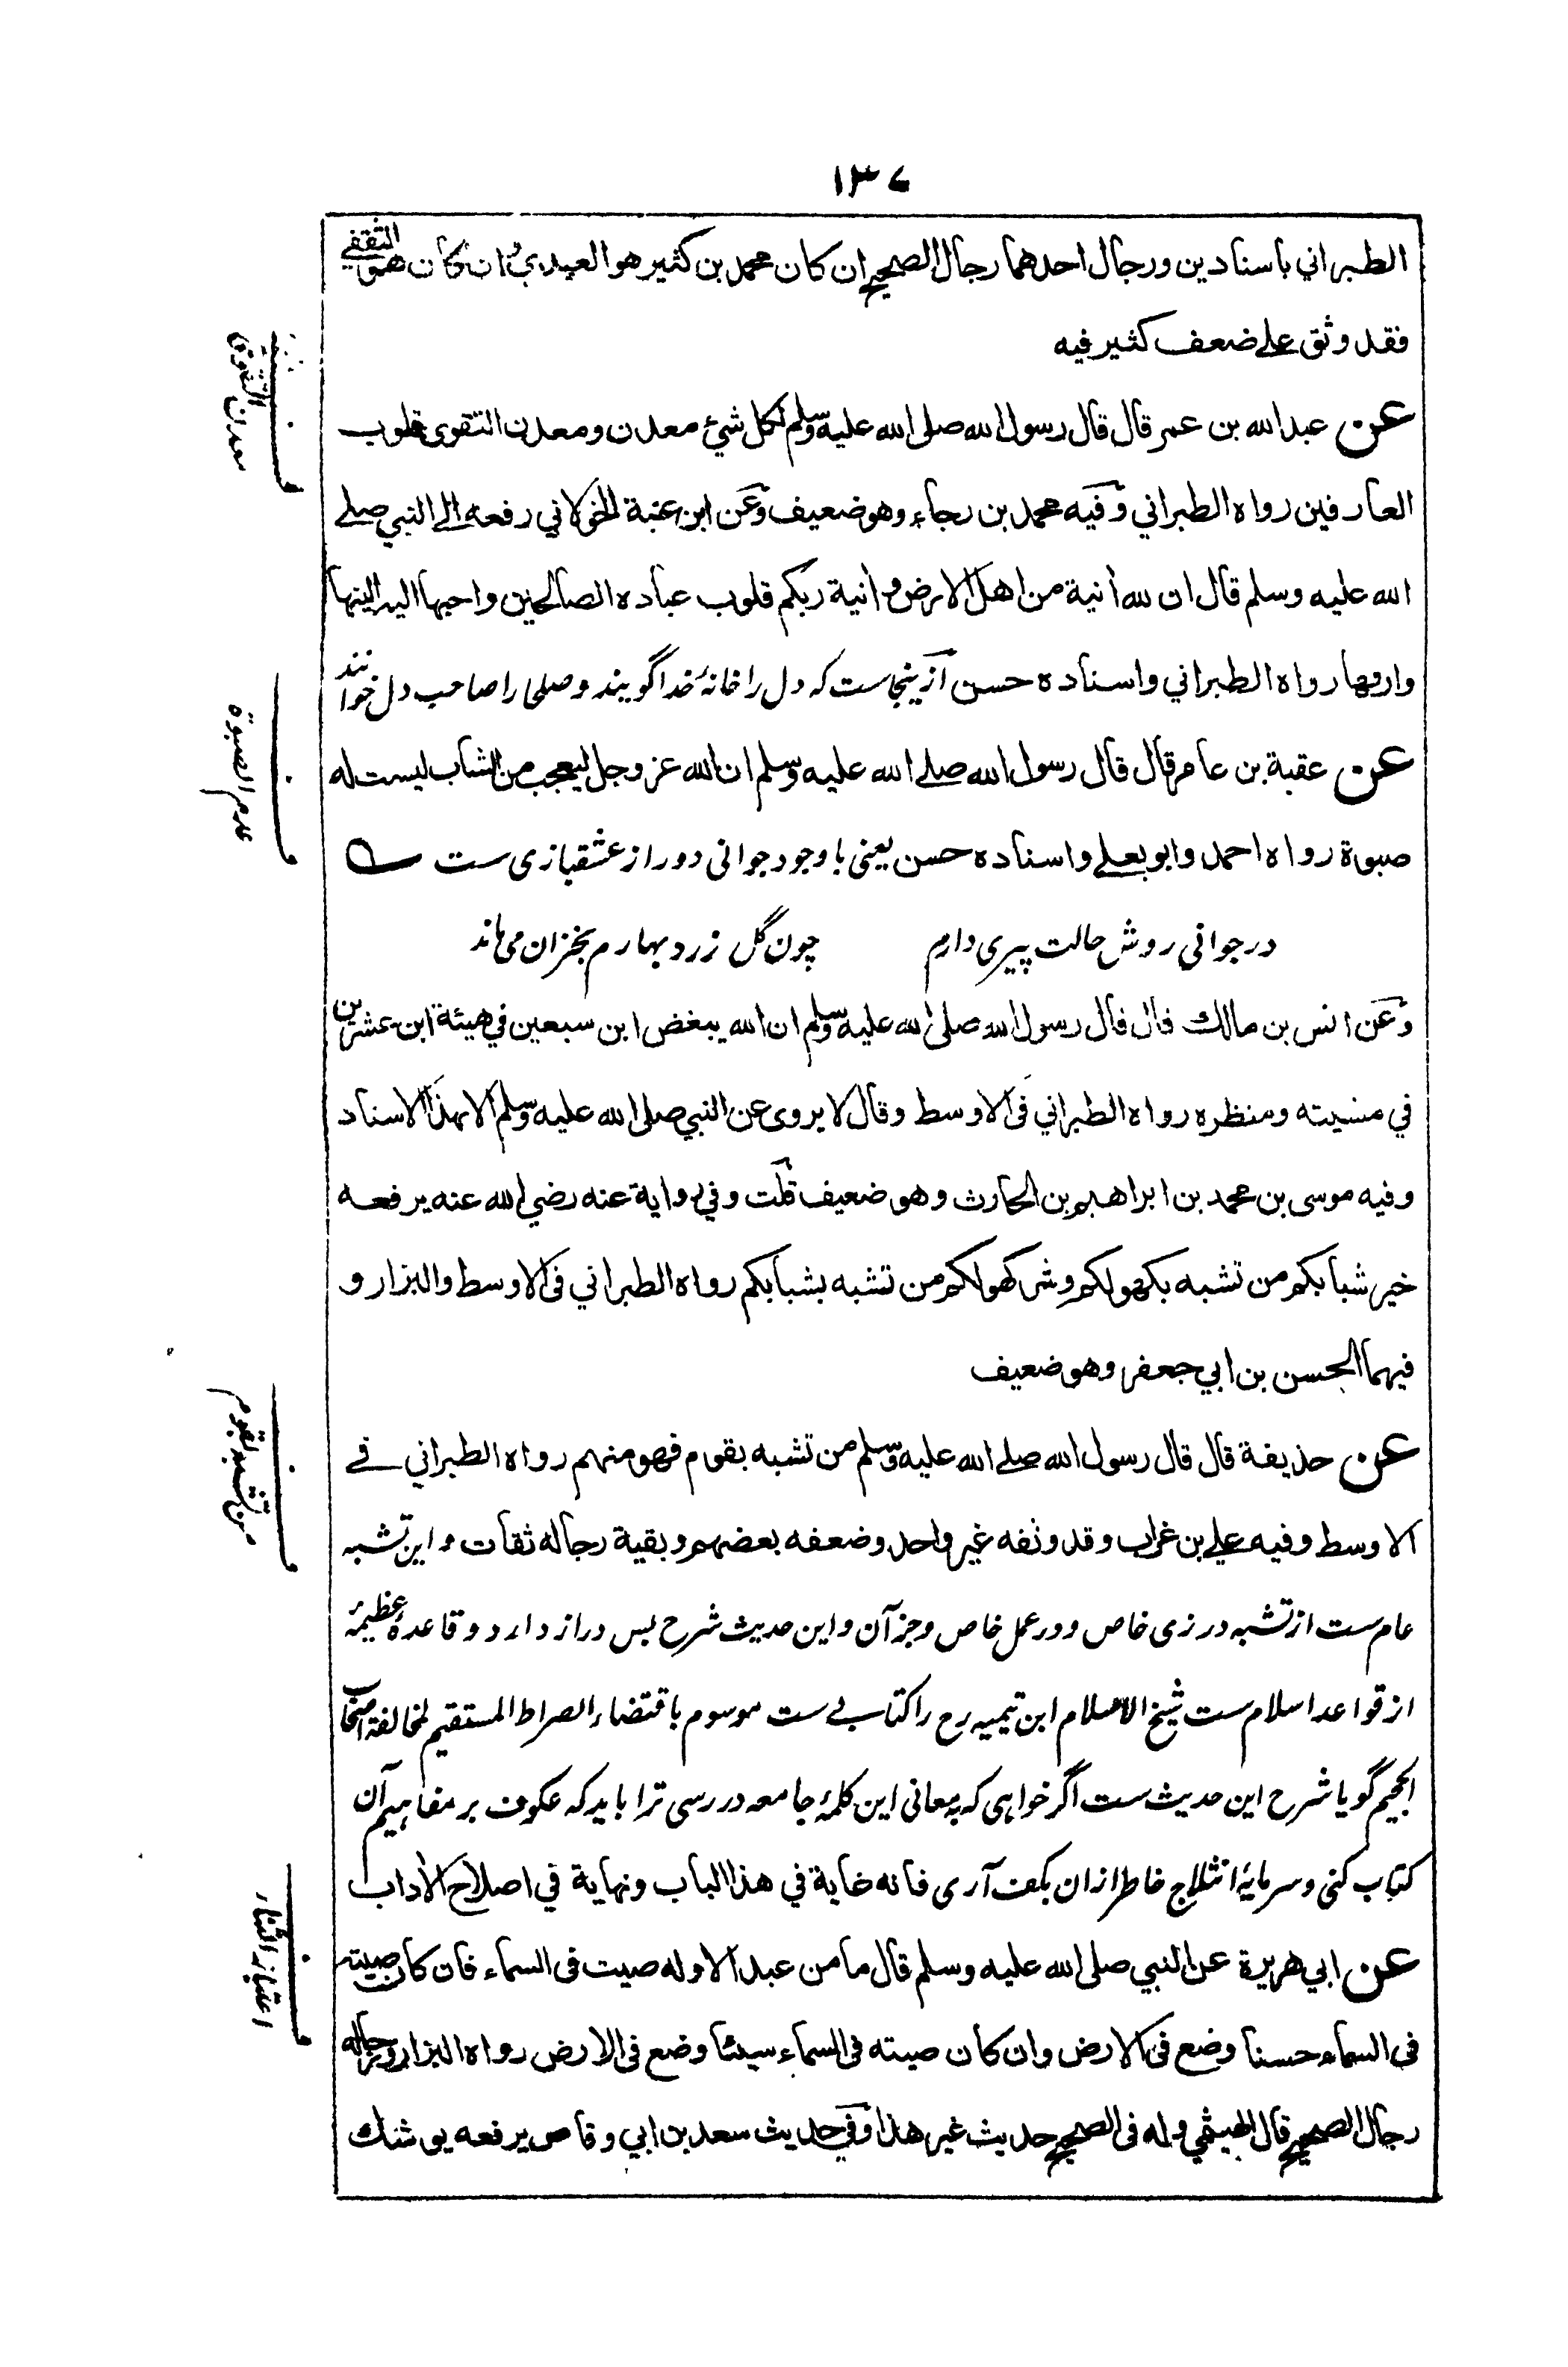 ١٣٧
الطبراني باسنادين ورجال احدهما رجال الصحيح ان كان محمد بن كثير هو العبدي وان كان هو الثقفي
فقد وثق علے ضعف كثير فيه
عن عبد الله بن عمر قال قال رسول الله صلى الله عليه وسلم لكل شيء معدن ومعدن التقوى قلوب
العارفين رواه الطبراني وفيه محمد بن رجاء وهو ضعيف وعن ابن عنبة الخولاني رفعه الے النبي صلے
الله عليه وسلم قال ان لله أنية من اهل الارض وأنية ربكم قلوب عباده الصالحين واحبها اليه الينها
وارقها رواه الطبراني واسناده حسن ازينجاست که دل را خانۂ خدا گويند وصلحا را صاحب دل خوانند
عن عقبة بن عامر قال قال رسول الله صلے الله عليه وسلم ان الله عز وجل ليعجب من الشاب ليست له
صبوة رواه احمد وابو يعلے واسناده حسن يعنی با وجود جوانی دور از عشقبازی ست
در جوانی روش حالت پيری دارم چون گل زرد بهارم بخزان می ماند
وعن انس بن مالك قال قال رسول الله صلى الله عليه وسلم ان الله يبغض ابن سبعين في هيئة ابن عشرين
في مشيته ومنظره رواه الطبراني فى الاوسط وقال لا يروى عن النبي صلى الله عليه وسلم الا بهذا الاسناد
وفيه موسى بن محمد بن ابراهيم بن الحارث وهو ضعيف قلت وفي رواية عنه رضي الله عنه يرفعه
خير شبابكم من تشبه بكهولكم وشر كهولكم من تشبه بشبابكم رواه الطبراني فى الاوسط والبزار و
فيهما الحسن بن ابي جعفر وهو ضعيف
عن حذيفة قال قال رسول الله صلے الله عليه وسلم من تشبه بقوم فهو منهم رواه الطبراني فے
الاوسط وفيه علي بن غراب وقد وثقه غير واحد وضعفه بعضهم وبقية رجاله ثقات و اين تشبه
عام ست از تشبه در زی خاص و در عمل خاص و جز آن و اين حديث شرح بس دراز دارد و قاعدۀ عظيمۂ
از قواعد اسلام ست شيخ الاسلام ابن تيميه رح را کتابے ست موسوم باقتضاء الصراط المستقيم لمخالفة اصحاب
الجحيم گويا شرح اين حديث ست اگر خواہی که بمعانی اين کلمۂ جامعه در رسی ترا بايد که عکوف بر مفاہيم آن
کتاب کنی و سرمايۂ انثلاج خاطر ازان بکف آری فانه غاية في هذا الباب ونهاية في اصلاح الاداب
عن ابي هريرة عن النبي صلى الله عليه وسلم قال ما من عبد الا وله صيت فى السماء فان كان صيته
فى السماء حسنا وضع فى الارض وان كان صيته فى السماء سيئا وضع فى الارض رواه البزار ورجاله
رجال الصحيح قال الهيثمي وله فى الصحيح حديث غير هذا وفي حديث سعد بن ابي وقاص يرفعه يوشك
معدن التقوى
عدم الصبوة
من تشبه بقوم
اعتبار الثناء